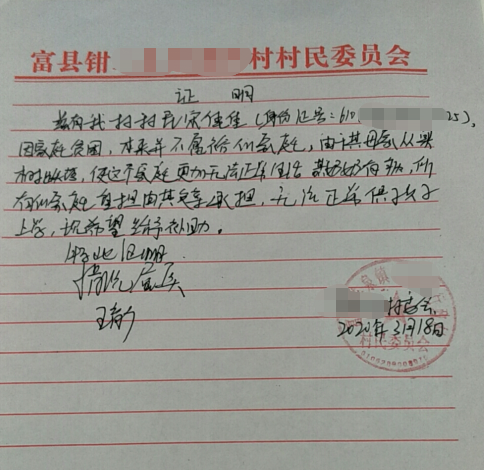 富县钳 村村民委员会
证 明
兹有我村村民宋佳佳(身份证号:610 25),
因家庭贫困,本来并不富裕的家庭,由于其母亲从
使这个家庭更加无法正常生活 其奶奶有病,所
有的家庭负担由其父亲承担,无法正常供子女
上学,望给予补助。
特此证明
情况属实
村委会
2020年3月18日
村民委员会